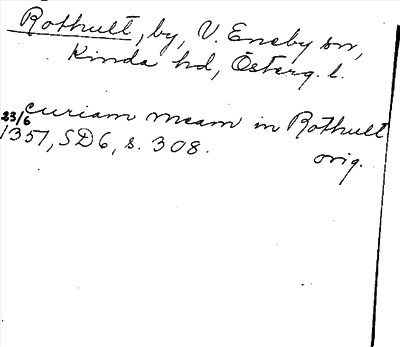 Rothult, by, V. Eneby sn,
Kinda hd, Österg. l.
curiam meam in Rothult
23/6 1357, SD6, s. 308. orig.